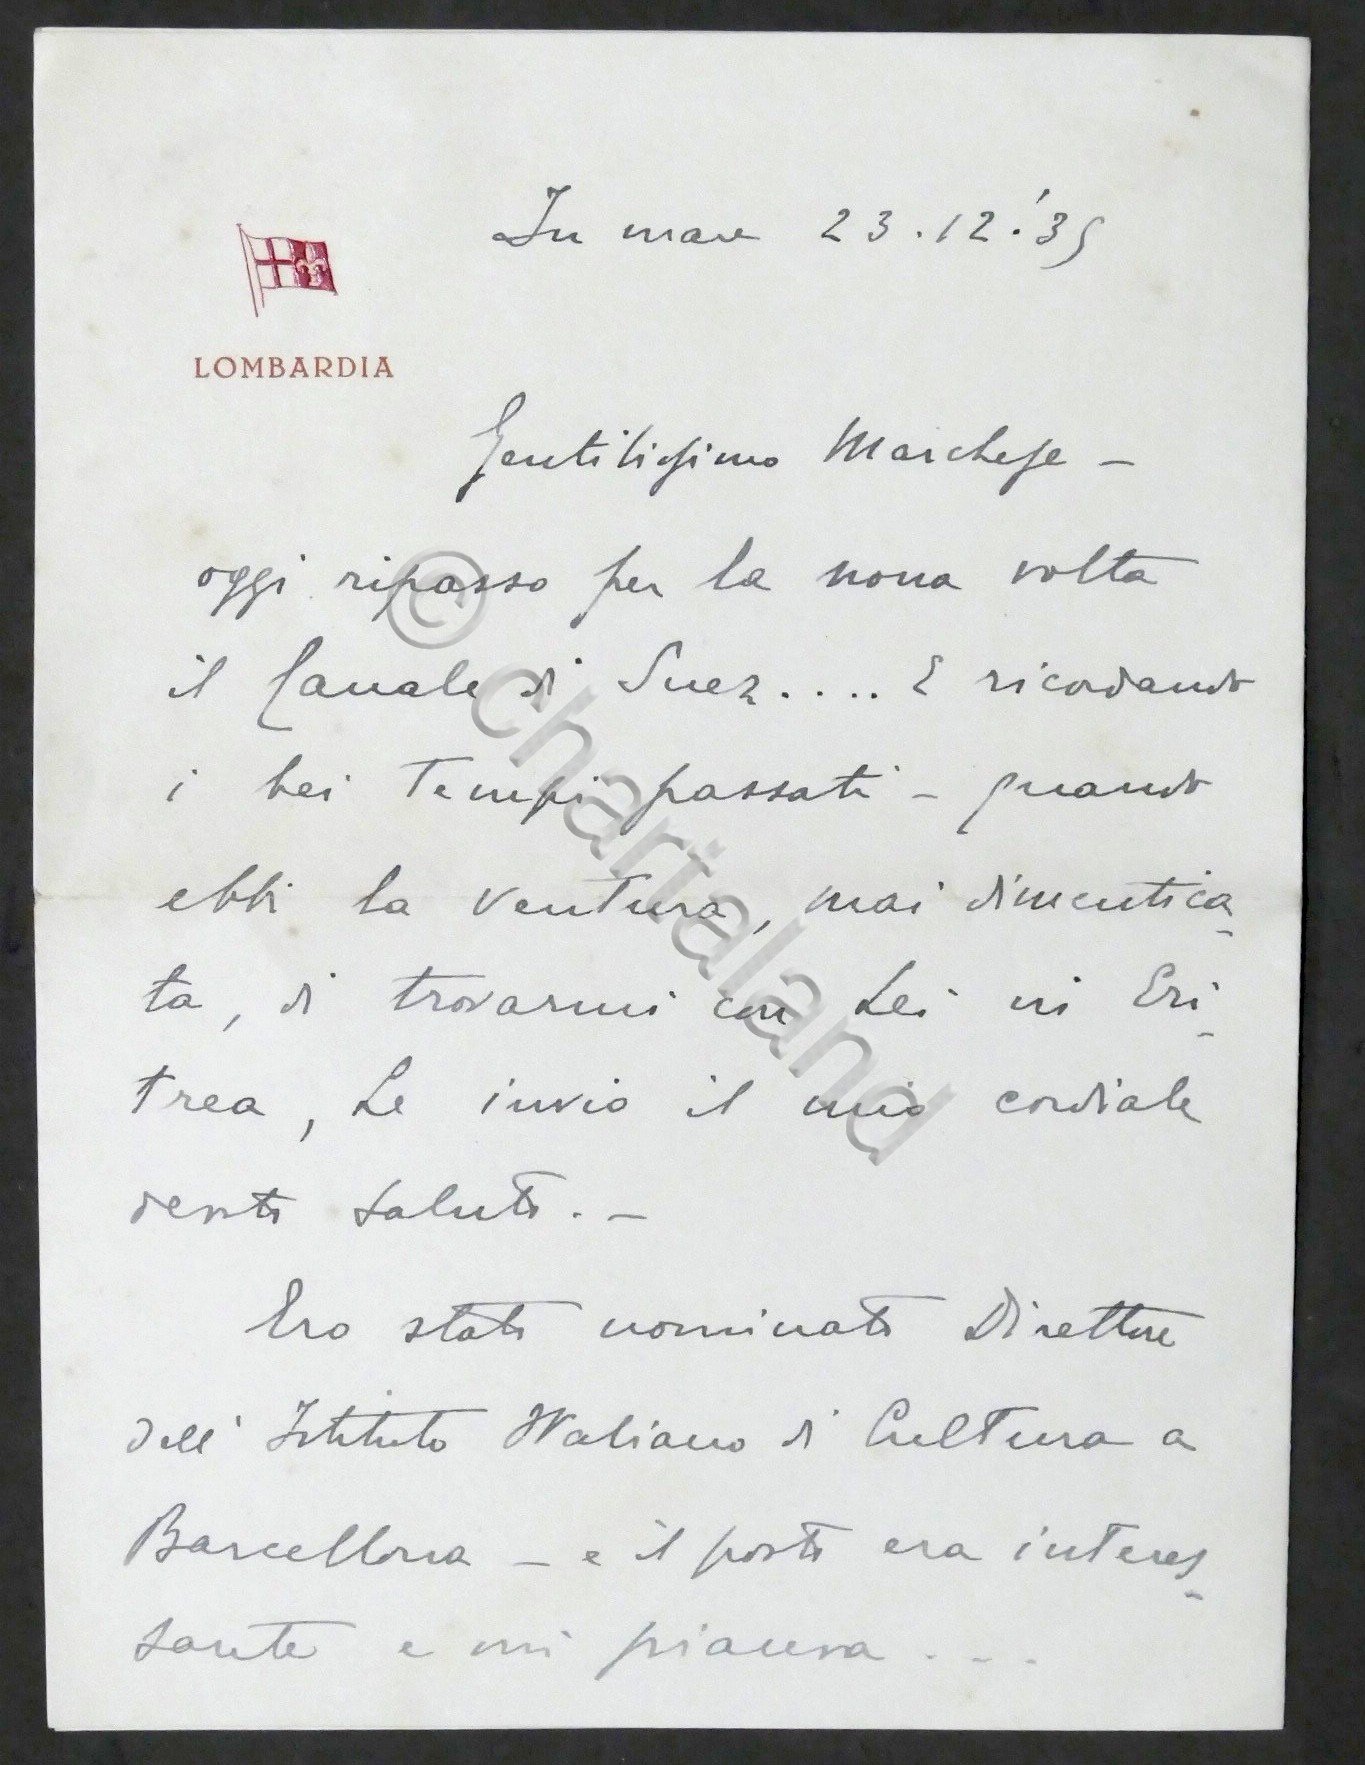 In mare 23.12.'35
LOMBARDIA
Gentilissimo Marchese –
oggi ripasso per la nona volta
il Canale di Suez.... E ricordando
i bei tempi passati – quando
ebbi la ventura, mai dimentica-
ta, di trovarmi con Lei in Eri-
trea, Le invio il mio cordiale
devoto saluto. –
Ero stato nominato Direttore
dell'Istituto Italiano di Cultura a
Barcellona – e il posto era interes-
sante e mi piaceva ....
© chartaland